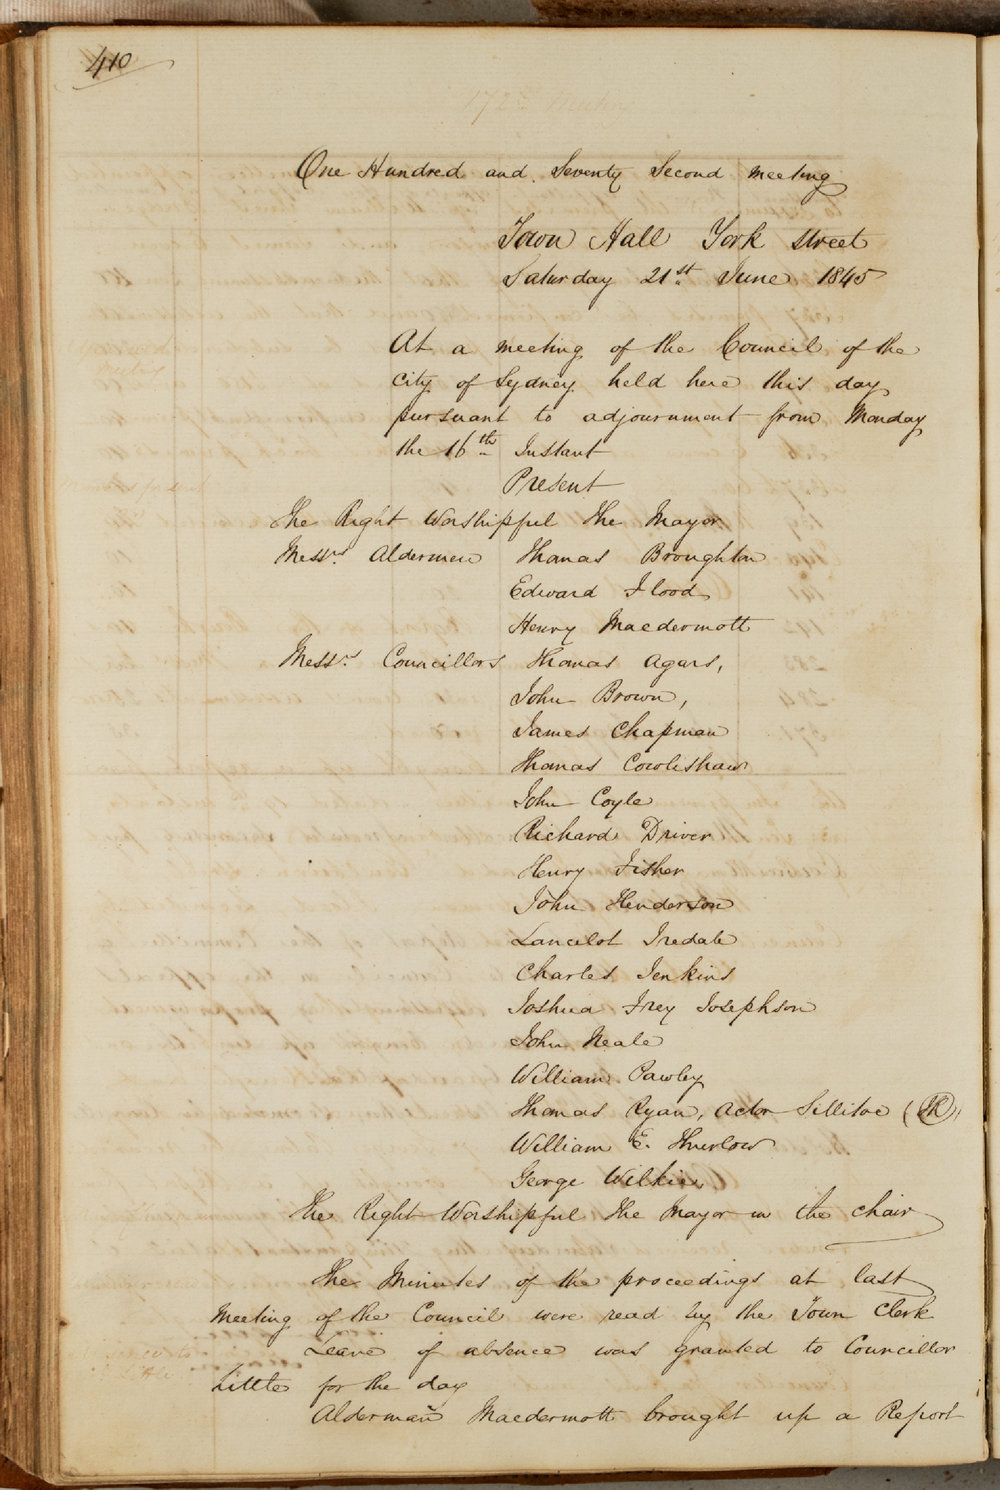 410
172nd Meeting
One Hundred and Seventy Second meeting
Town Hall York street
Saturday 21st June 1845
At a meeting of the Council of the
City of Sydney held here this day
pursuant to adjournment from Monday
the 16th Instant
Present
The Right Worshipful The Mayor
Messrs. Aldermen Thomas Broughton
Edward Flood
Henry Macdermott
Messrs. Councillors Thomas Agars,
John Brown,
James Chapman
Thomas Cowlishaw
John Coyle
Richard Driver
Henry Fisher
John Henderson
Lancelot Iredale
Charles Jenkins
Joshua Frey Josephson
John Neale
William Pawley
Thomas Ryan, Acton Sillitoe (JR)
William E. Thurlow
George Wilkie
The Right Worshipful The Mayor in the chair
The Minutes of the proceedings at last
Meeting of the Council were read by the Town Clerk
Leave of absence was granted to Councillor
Little for the day
Alderman Macdermott brought up a Report